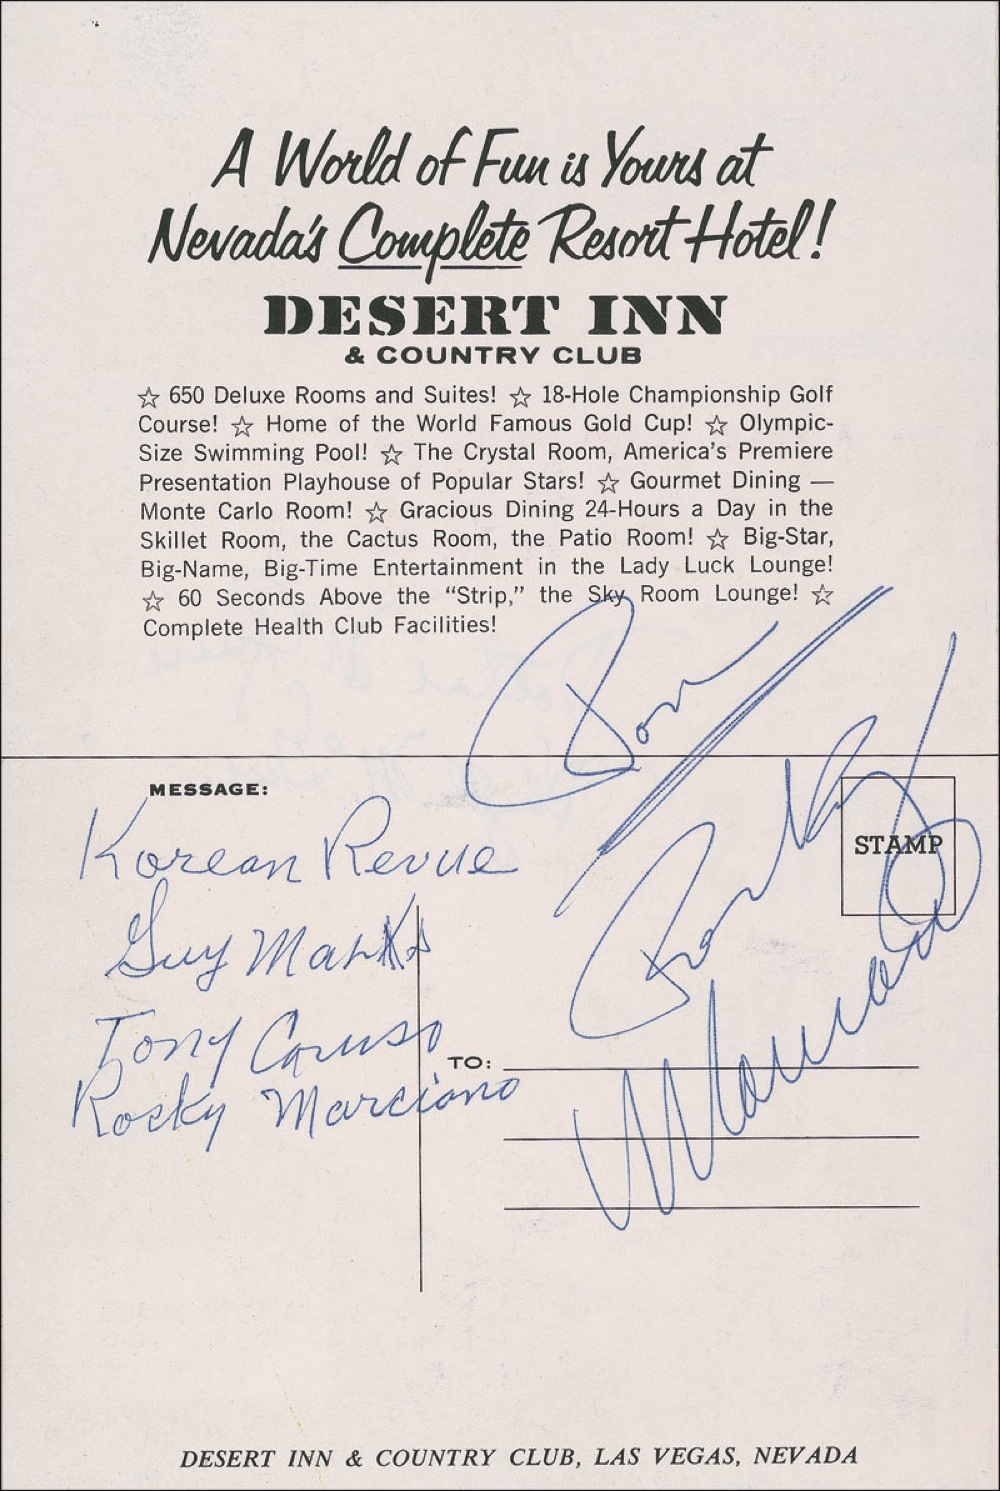 A World of Fun is Yours at
Nevada's Complete Resort Hotel!
DESERT INN
& COUNTRY CLUB
☆ 650 Deluxe Rooms and Suites! ☆ 18-Hole Championship Golf
Course! ☆ Home of the World Famous Gold Cup! ☆ Olympic-
Size Swimming Pool! ☆ The Crystal Room, America's Premiere
Presentation Playhouse of Popular Stars! ☆ Gourmet Dining —
Monte Carlo Room! ☆ Gracious Dining 24-Hours a Day in the
Skillet Room, the Cactus Room, the Patio Room! ☆ Big-Star,
Big-Name, Big-Time Entertainment in the Lady Luck Lounge!
☆ 60 Seconds Above the "Strip," the Sky Room Lounge! ☆
Complete Health Club Facilities!
MESSAGE:
STAMP
Korean Revue
Guy Marks
Tony Caruso
Rocky Marciano
TO:
Rocky
Marciano
DESERT INN & COUNTRY CLUB, LAS VEGAS, NEVADA